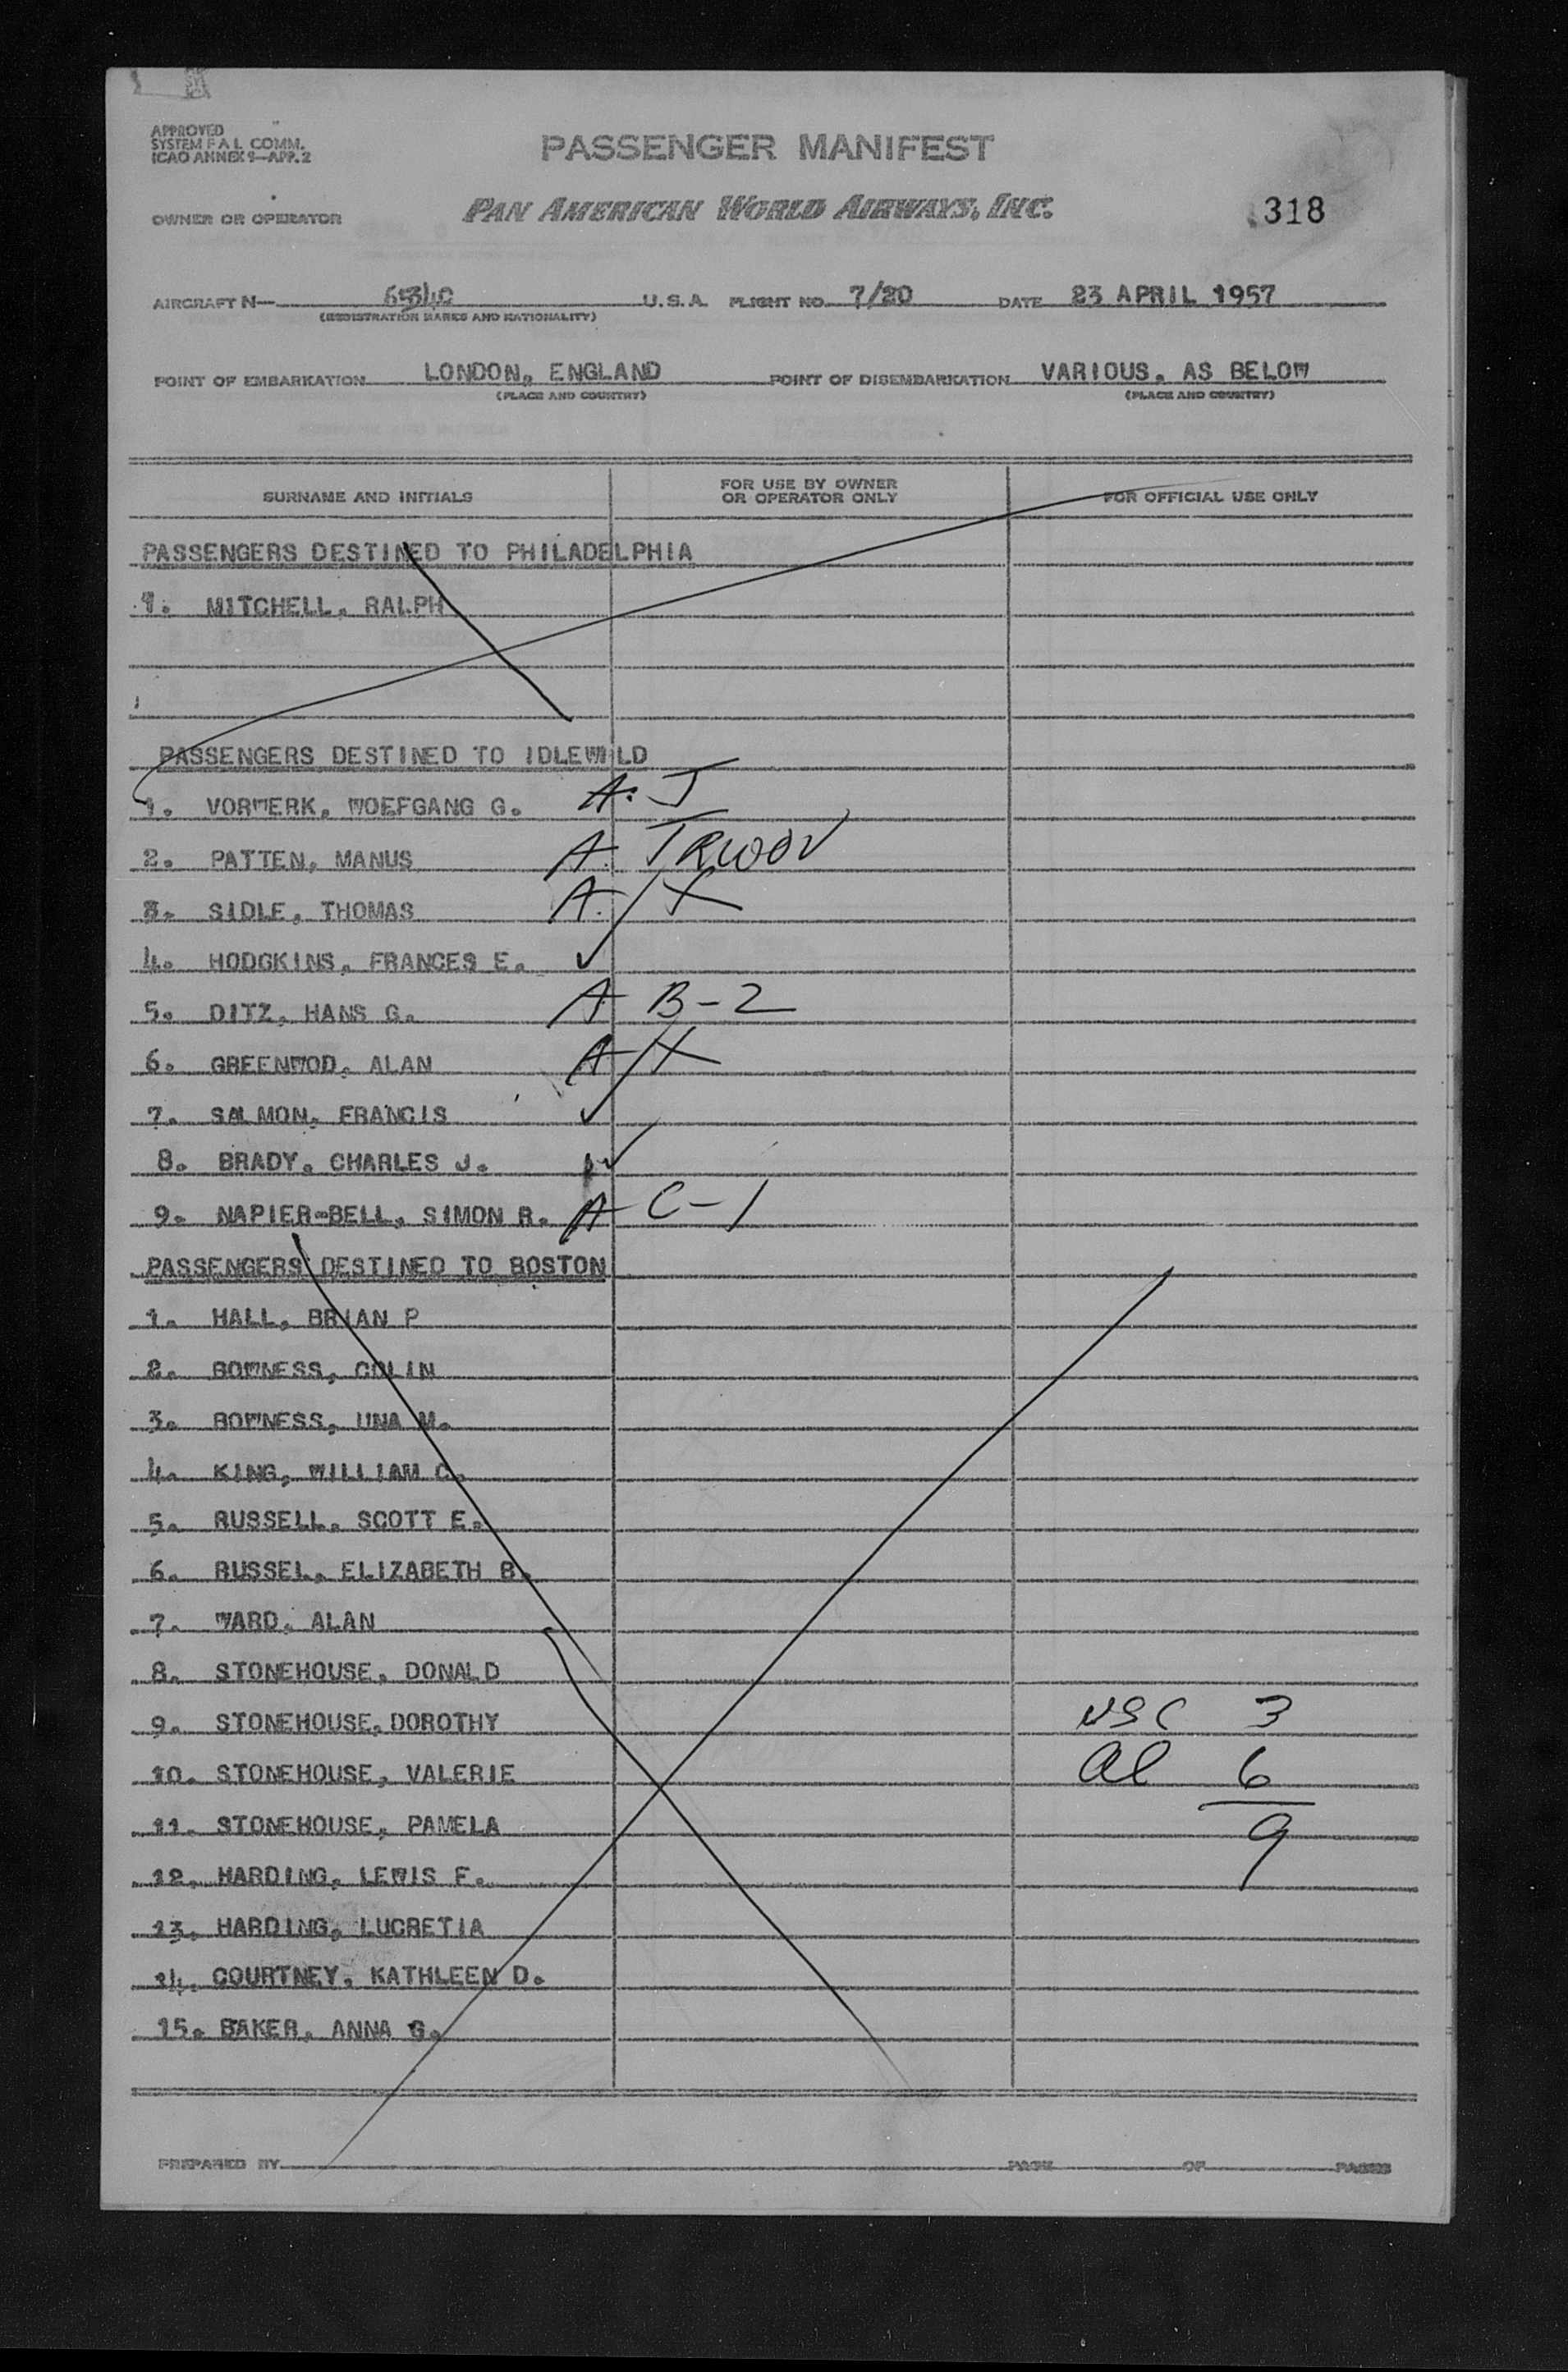 APPROVED
SYSTEM F A L COMM.
ICAO ANNEX 9—APP. 2
PASSENGER MANIFEST
OWNER OR OPERATOR PAN AMERICAN WORLD AIRWAYS, INC. 318
AIRCRAFT N— U.S.A. FLIGHT NO. 7/20 DATE 23 APRIL 1957
(REGISTRATION MARKS AND NATIONALITY)
POINT OF EMBARKATION LONDON, ENGLAND POINT OF DISEMBARKATION VARIOUS, AS BELOW
(PLACE AND COUNTRY) (PLACE AND COUNTRY)
SURNAME AND INITIALS FOR USE BY OWNER OR OPERATOR ONLY FOR OFFICIAL USE ONLY
PASSENGERS DESTINED TO PHILADELPHIA
1. MITCHELL, RALPH
PASSENGERS DESTINED TO IDLEWILD
1. VORWERK, WOEFGANG G. A. J
2. PATTEN, MANUS A. TRWOV
3. SIDLE, THOMAS A. X
4. HODGKINS, FRANCES E. ✓
5. DITZ, HANS G. A B-2
6. GREENWOD, ALAN A X
7. SALMON, FRANCIS ✓
8. BRADY, CHARLES J. ✓
9. NAPIER-BELL, SIMON R. A C-1
PASSENGERS DESTINED TO BOSTON
1. HALL, BRIAN P
2. BOWNESS, COLIN
3. BOWNESS, UNA M.
4. KING, WILLIAM C.
5. RUSSELL, SCOTT E.
6. RUSSEL, ELIZABETH B.
7. WARD, ALAN
8. STONEHOUSE, DONALD
9. STONEHOUSE, DOROTHY USC 3
10. STONEHOUSE, VALERIE al 6
11. STONEHOUSE, PAMELA 9
12. HARDING, LEWIS F.
13. HARDING, LUCRETIA
14. COURTNEY, KATHLEEN D.
15. BAKER, ANNA G.
PREPARED BY PAGE OF PAGES